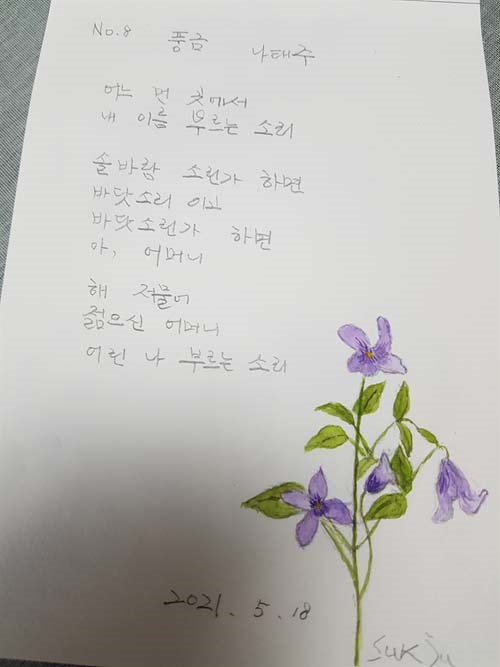 No.8 풍금 나태주
어느 먼 곳에서
내 이름 부르는 소리
솔바람 소린가 하면
바닷소리 이고
바닷소린가 하면
아, 어머니
해 저물어
젊으신 어머니
어린 나 부르는 소리
2021. 5. 18
Suk Ju